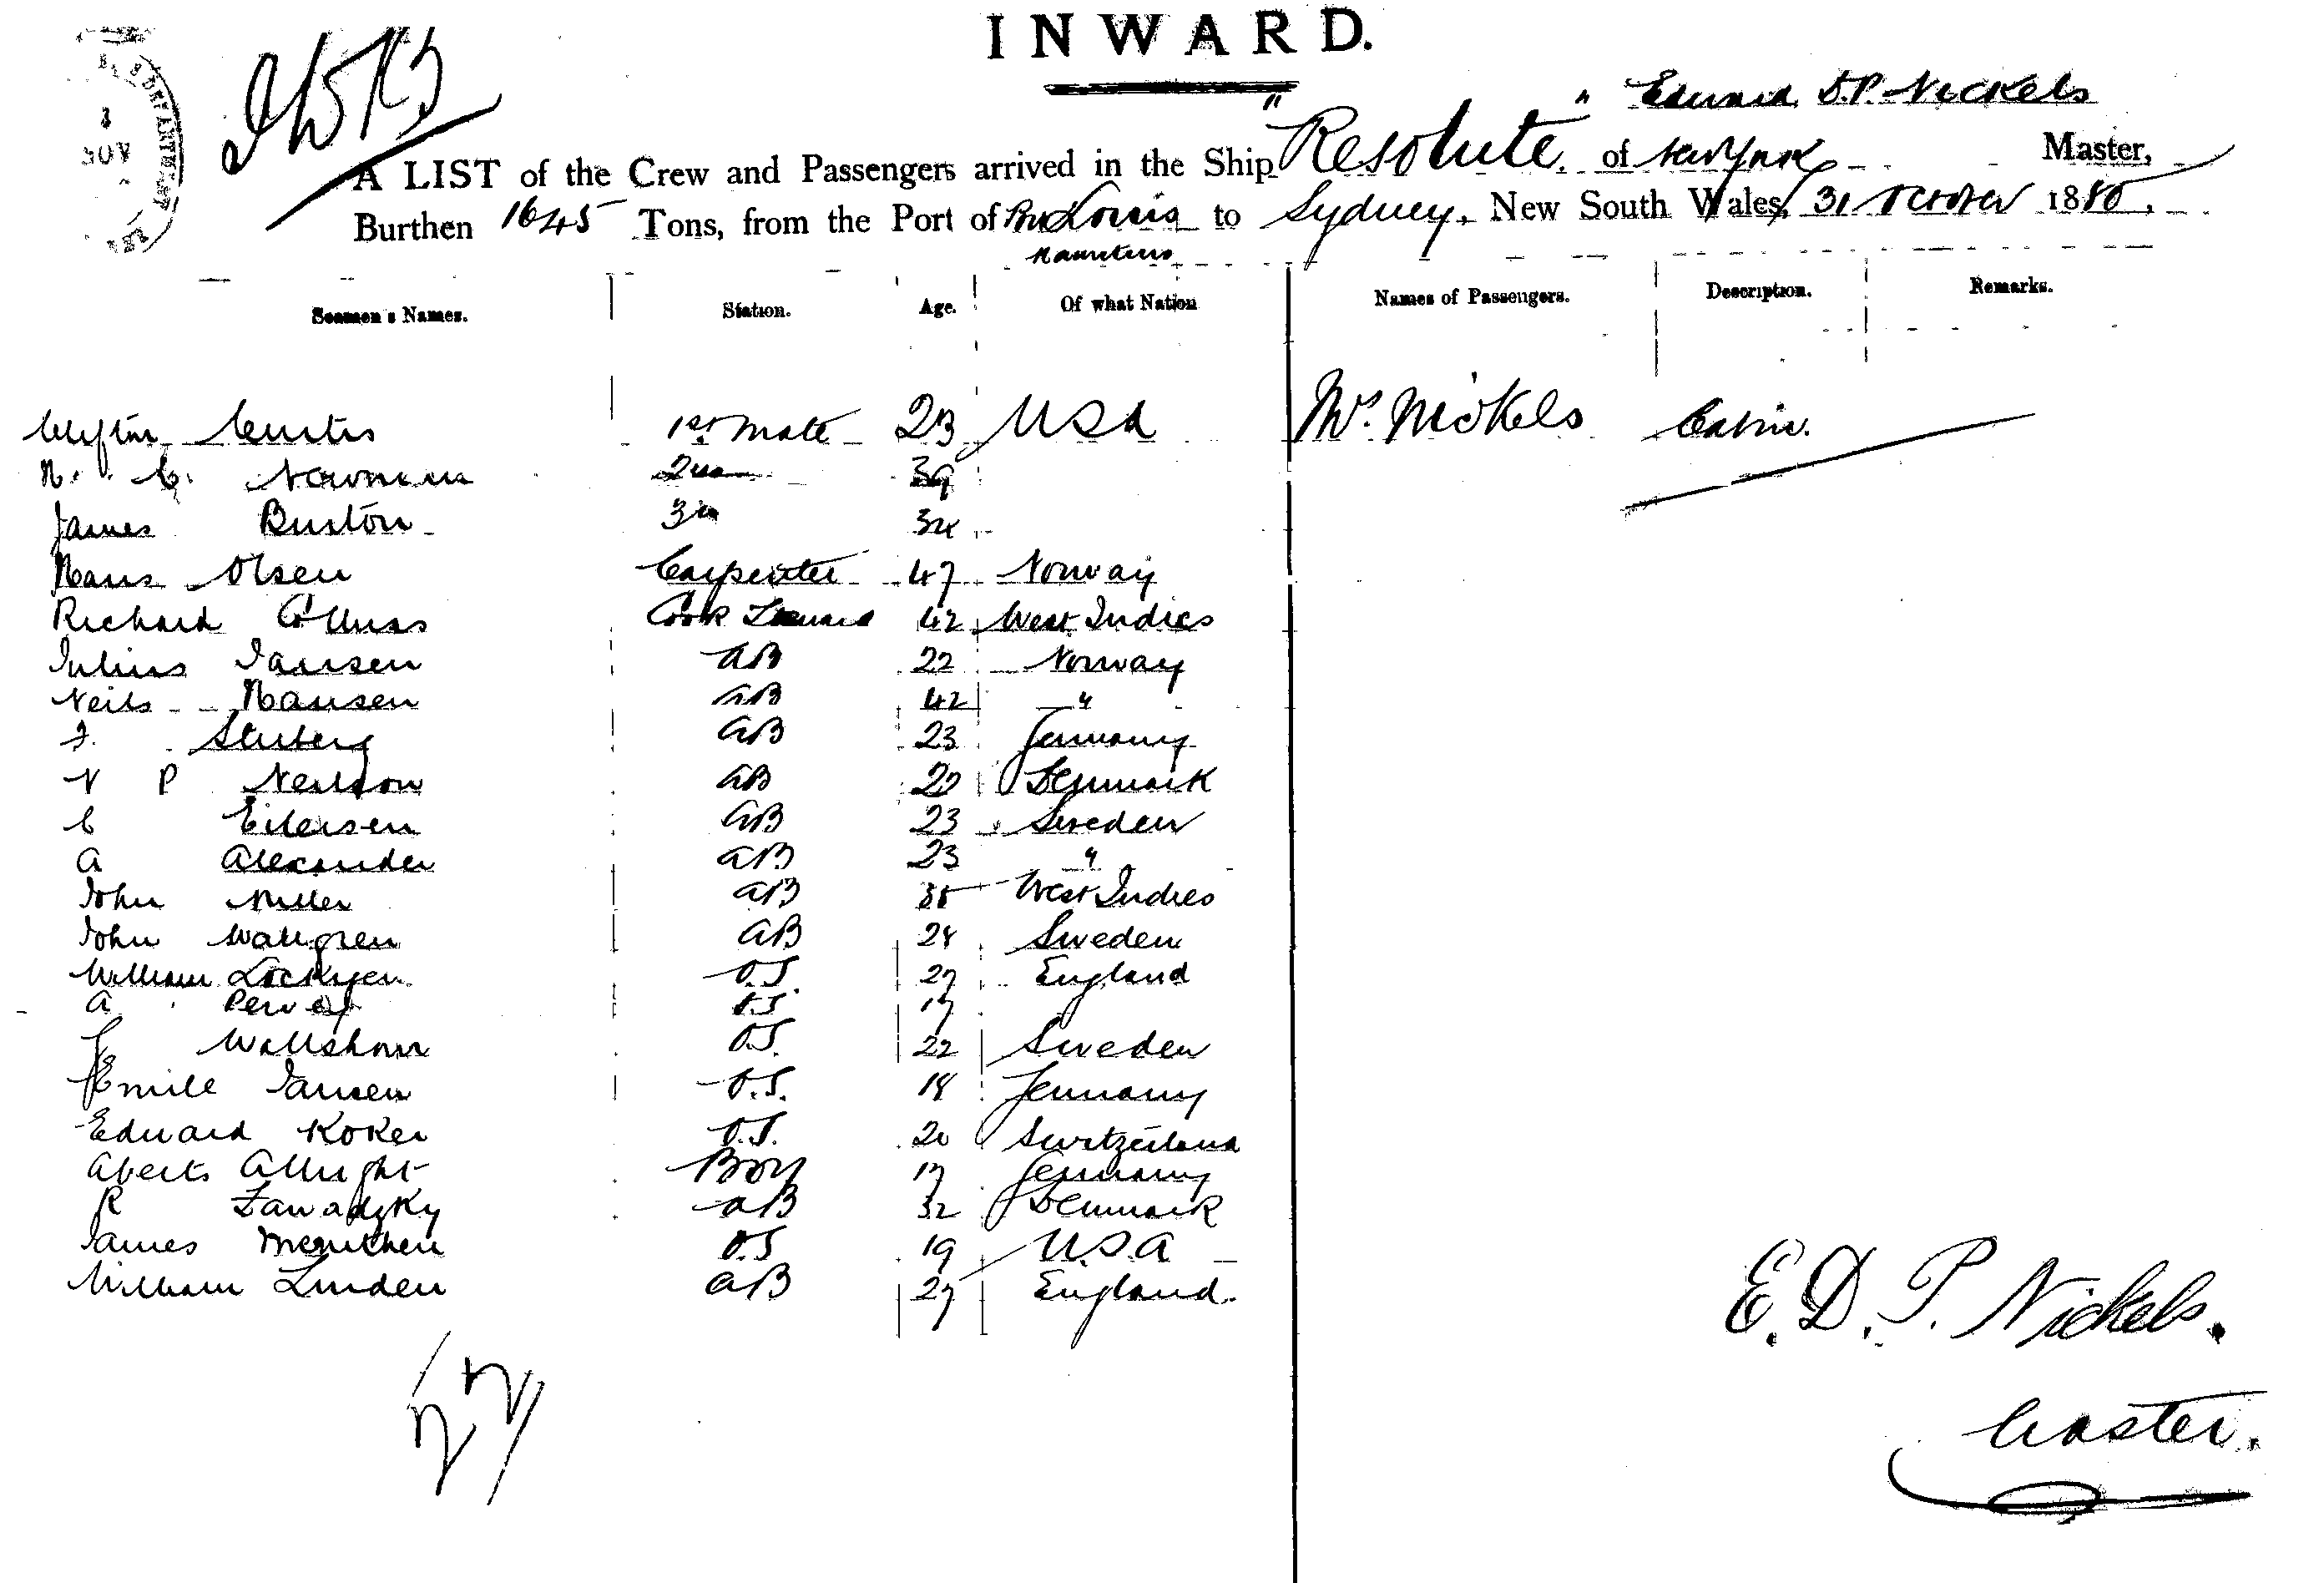 INWARD.
" Resolute " Edward D.P. Nickels
A LIST of the Crew and Passengers arrived in the Ship of New York Master,
Burthen 1645 Tons, from the Port of Port Louis to Sydney, New South Wales, 31 October 1880.
Mauritius
Seamen's Names. Station. Age. Of what Nation Names of Passengers. Description. Remarks.
Clifton Curtis 1st Mate 23 USA Mrs Nickels Cabin.
H. C. Newman 2nd 39
James Buston 3rd 34
Hans Olsen Carpenter 47 Norway
Richard Cook Steward 42 West Indies
Julius Jansen AB 22 Norway
Neils Hansen AB 42 "
F. AB 23 Germany
N P Neilson AB 22 Denmark
C Eilersen AB 23 Sweden
A Alexander AB 23 "
John Miller AB 35 West Indies
John Wallgren AB 24 Sweden
William Lockyer O.S. 27 England
A O.S 17
J O.S. 22 Sweden
Emile Jansen O.S. 18 Germany
Edward Koker O.S. 20 Switzerland
Aberts Allright Boy 17 Germany
R Zawadzky AB 32 Denmark
James O.S 19 USA
William Linden AB 27 England.
E. D. P. Nickels.
Master.